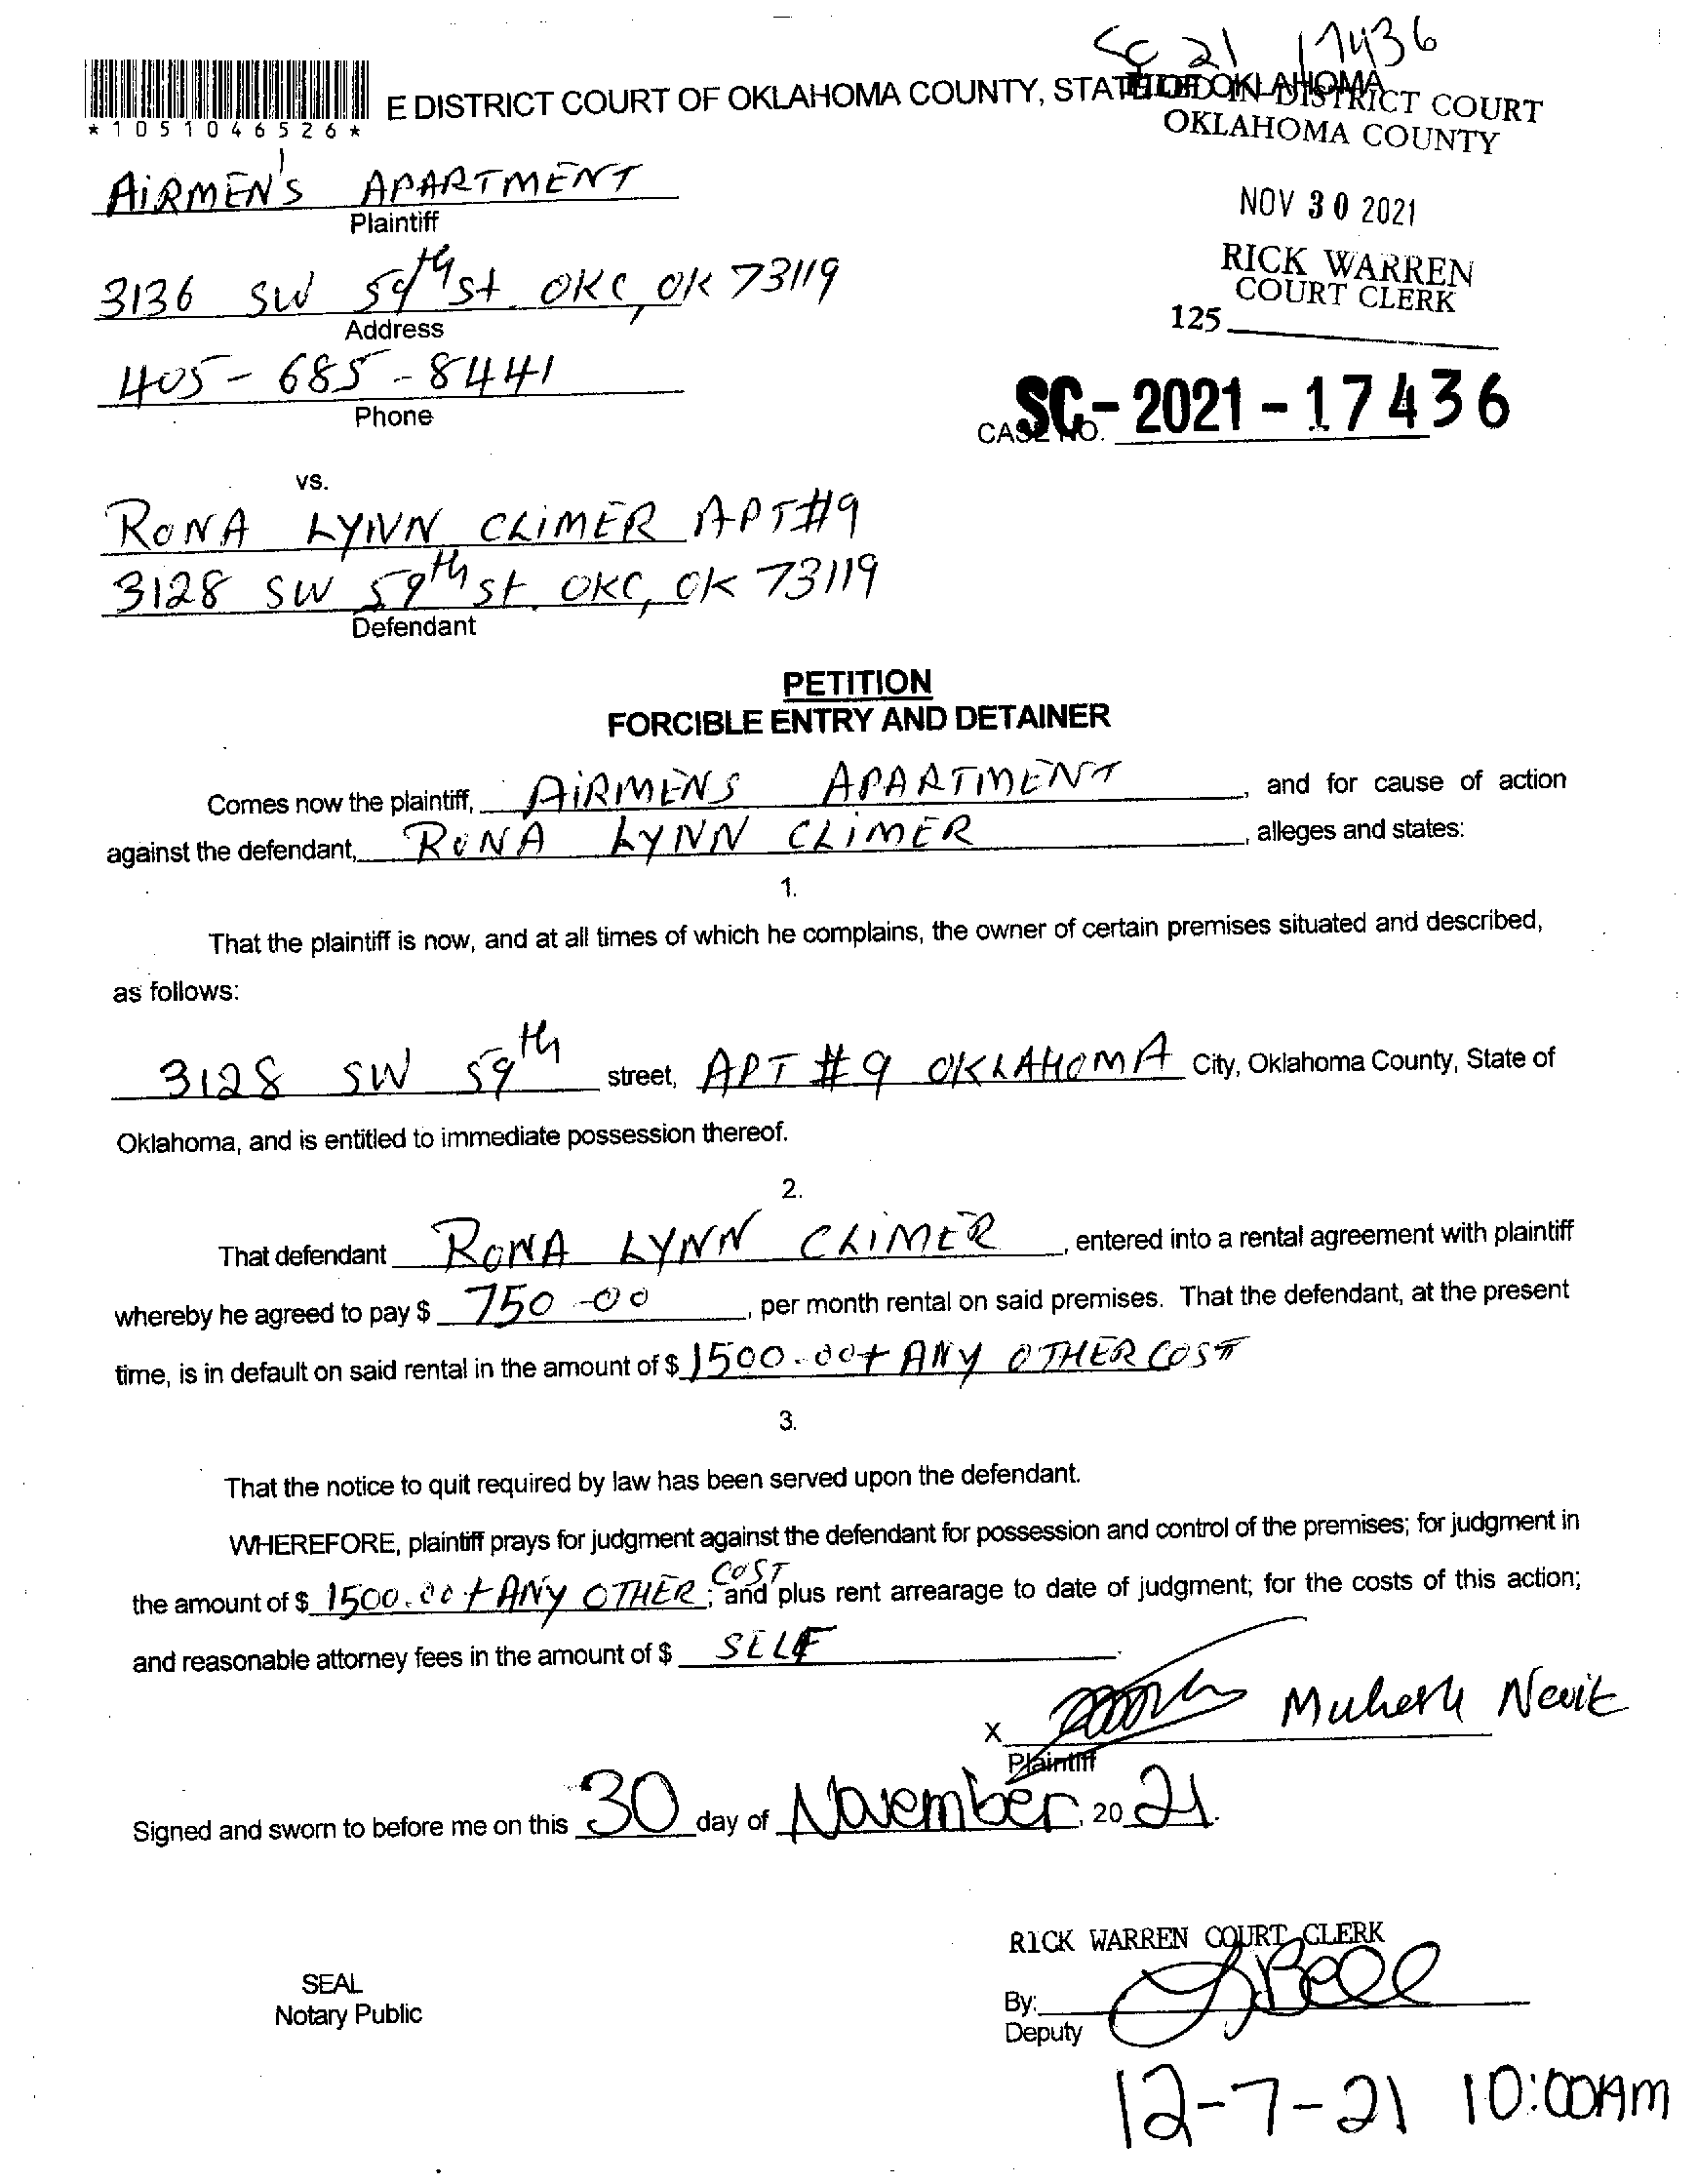 SC 21 17436
E DISTRICT COURT OF OKLAHOMA COUNTY, STATE OF OKLAHOMA
FILED IN DISTRICT COURT
OKLAHOMA COUNTY
*1051046526*
AIRMEN'S APARTMENT
Plaintiff
NOV 30 2021
3136 SW 59th St. OKC, OK 73119
Address
RICK WARREN
COURT CLERK
125
405-685-8441
Phone
CASE NO. SC-2021-17436
vs.
RONA LYNN CLIMER APT#9
3128 SW 59th St. OKC, OK 73119
Defendant
PETITION
FORCIBLE ENTRY AND DETAINER
Comes now the plaintiff, AIRMENS APARTMENT, and for cause of action
against the defendant, RONA LYNN CLIMER, alleges and states:
1.
That the plaintiff is now, and at all times of which he complains, the owner of certain premises situated and described,
as follows:
3128 SW 59th street, APT #9 OKLAHOMA City, Oklahoma County, State of
Oklahoma, and is entitled to immediate possession thereof.
2.
That defendant RONA LYNN CLIMER, entered into a rental agreement with plaintiff
whereby he agreed to pay $ 750-00, per month rental on said premises. That the defendant, at the present
time, is in default on said rental in the amount of $ 1500.00+ ANY OTHER COST
3.
That the notice to quit required by law has been served upon the defendant.
WHEREFORE, plaintiff prays for judgment against the defendant for possession and control of the premises; for judgment in
the amount of $ 1500.00 + ANY OTHER COST; and plus rent arrearage to date of judgment; for the costs of this action;
and reasonable attorney fees in the amount of $ SELF.
X
Plaintiff
Signed and sworn to before me on this 30 day of November, 2021.
RICK WARREN COURT CLERK
SEAL
Notary Public
By: Bell
Deputy
12-7-21 10:00AM